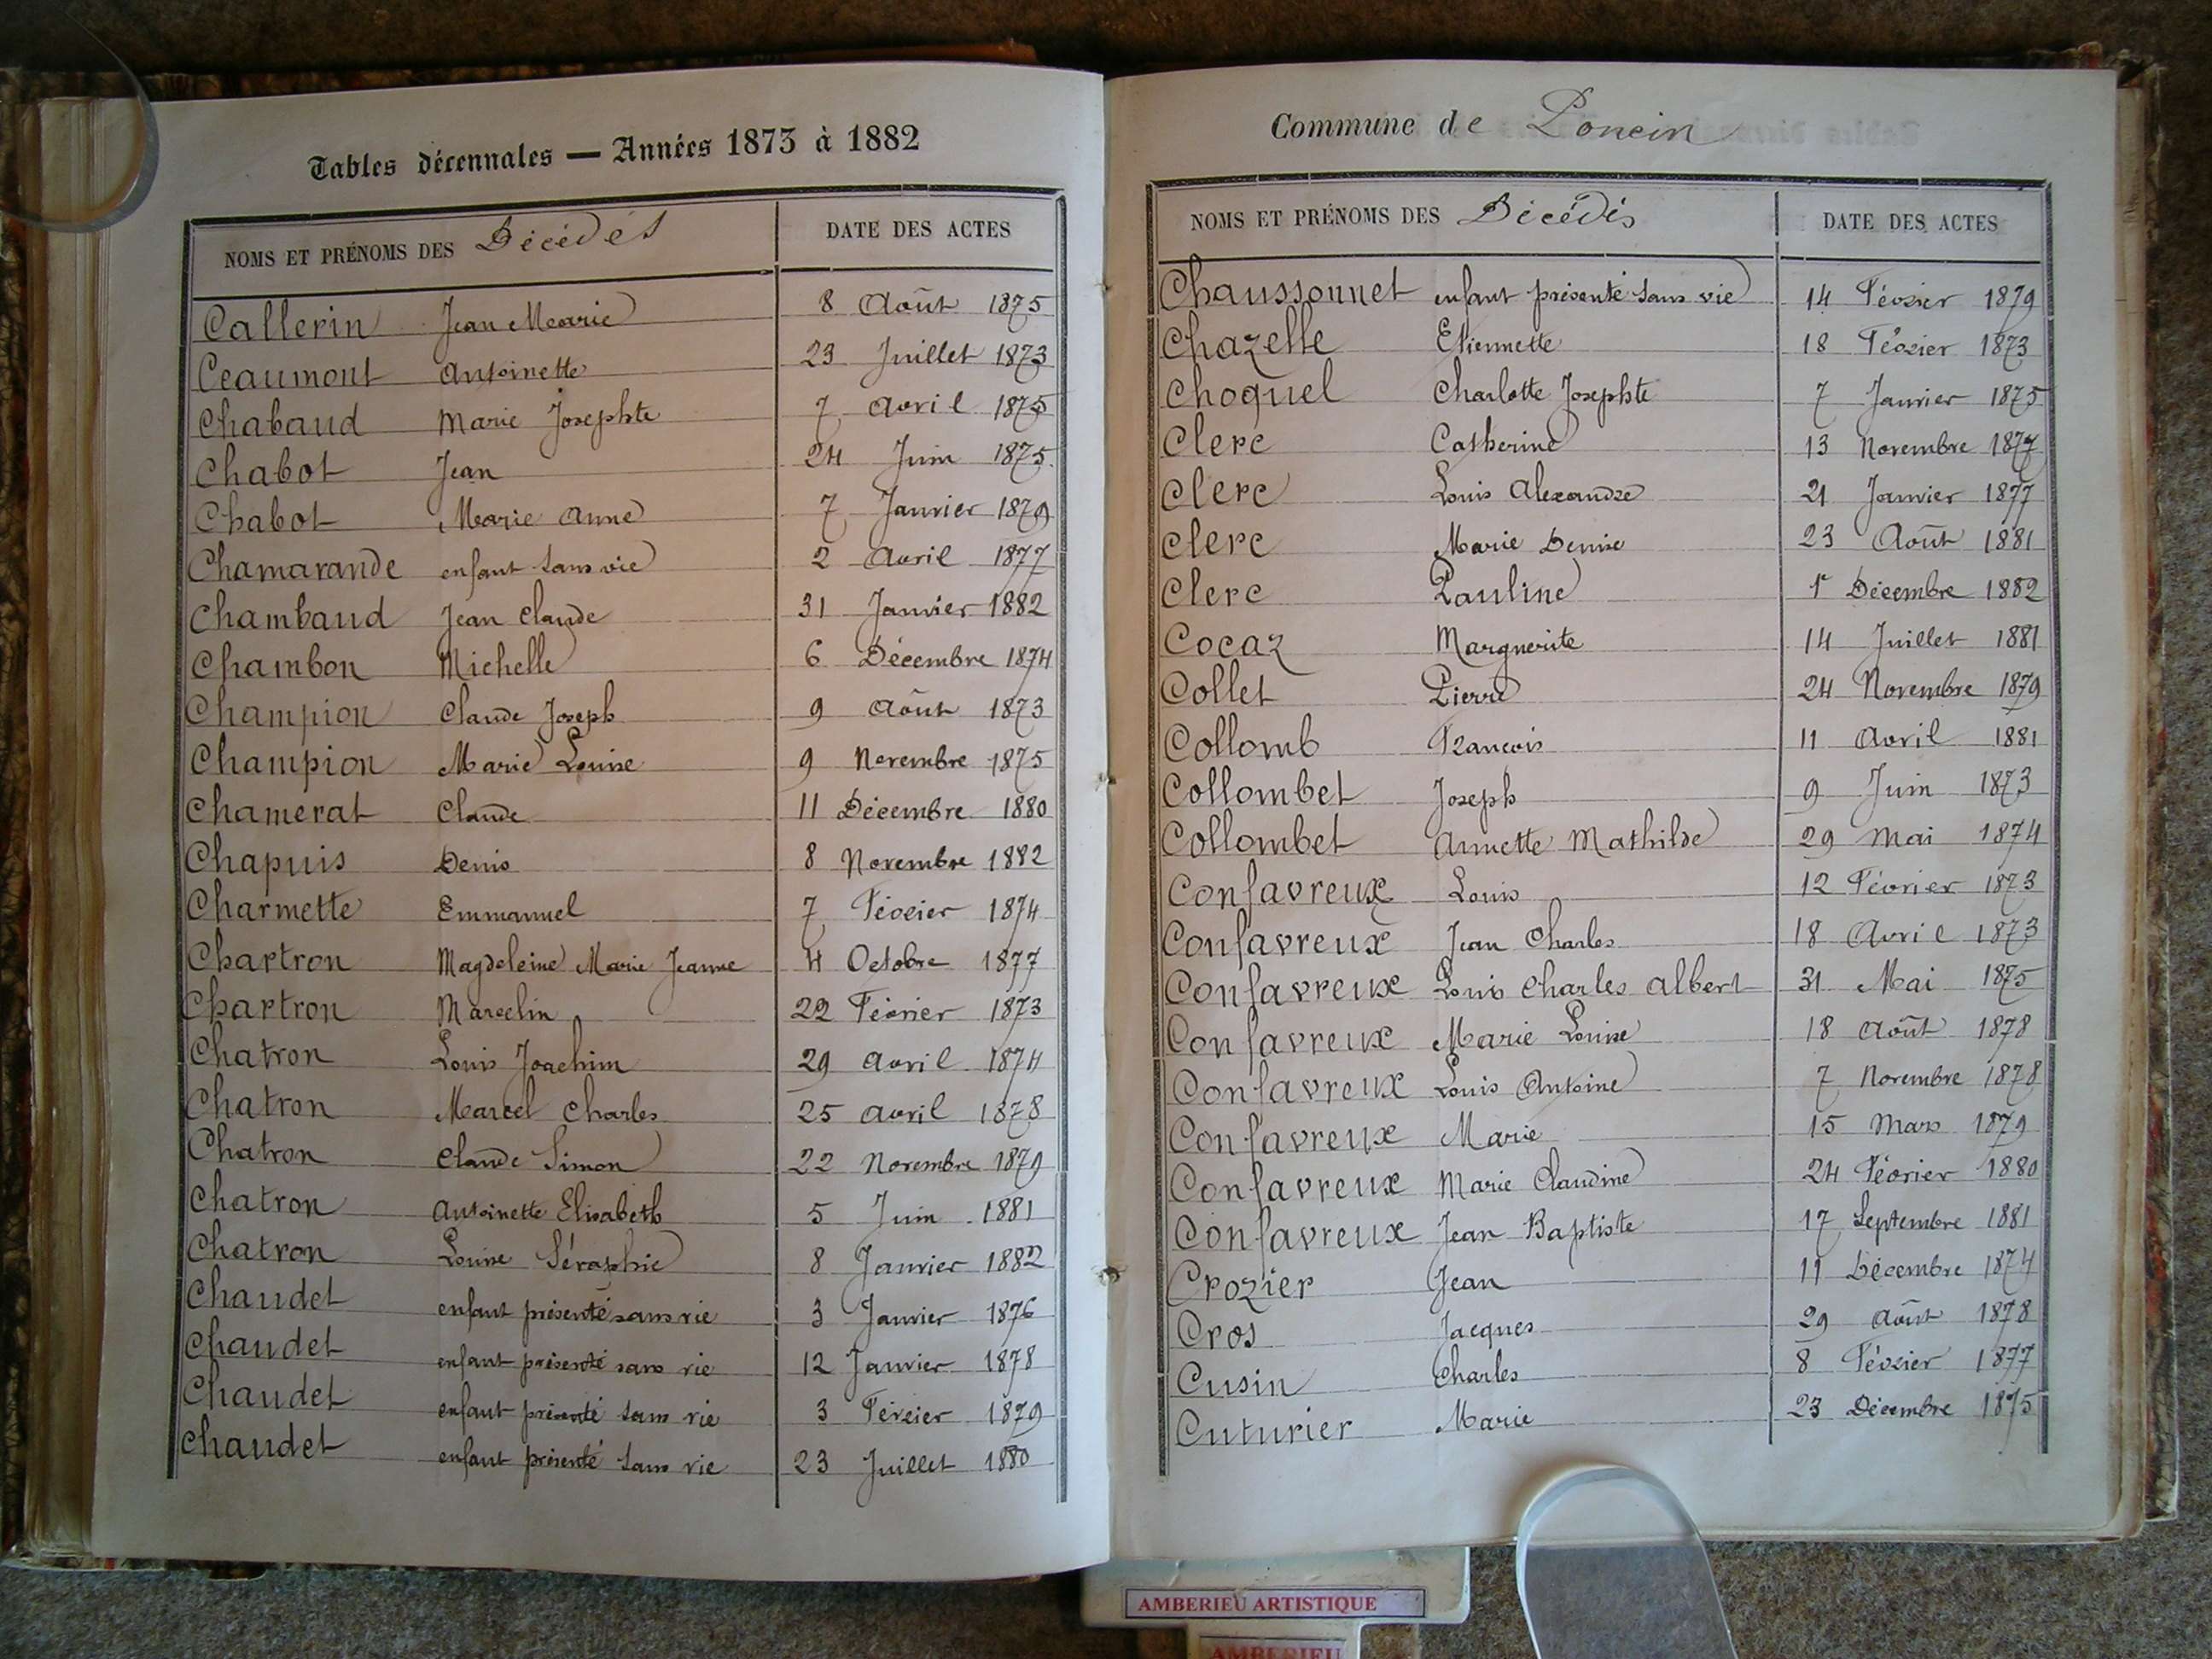 Tables décennales — Années 1873 à 1882
NOMS ET PRÉNOMS DES Décédés DATE DES ACTES
Callerin Jean Marie 8 Août 1875
Ceaumont Antoinette 23 Juillet 1873
Chabaud Marie Josephte 7 Avril 1875
Chabot Jean 24 Juin 1875
Chabot Marie Anne 7 Janvier 1879
Chamarande enfant sans vie 2 Avril 1877
Chambaud Jean Claude 31 Janvier 1882
Chambon Michelle 6 Décembre 1874
Champion Claude Joseph 9 Août 1873
Champion Marie Louise 9 Novembre 1875
Chamerat Claude 11 Décembre 1880
Chapuis Denis 8 Novembre 1882
Charmette Emmanuel 7 Février 1874
Chartron Magdeleine Marie Jeanne 4 Octobre 1877
Chartron Marcelin 22 Février 1873
Chatron Louis Joachim 29 Avril 1874
Chatron Marcel Charles 25 Avril 1878
Chatron Claude Simon 22 Novembre 1879
Chatron Antoinette Elisabeth 5 Juin 1881
Chatron Louise Séraphie 8 Janvier 1882
Chaudet enfant présenté sans vie 3 Janvier 1876
Chaudet enfant présenté sans vie 12 Janvier 1878
Chaudet enfant présenté sans vie 3 Février 1879
Chaudet enfant présenté sans vie 23 Juillet 1880
Commune de Poncin
NOMS ET PRÉNOMS DES Décédés DATE DES ACTES
Chaussonnet enfant présenté sans vie 14 Février 1879
Chazelle Etiennette 18 Février 1873
Choquel Charlotte Josephte 7 Janvier 1875
Clerc Catherine 13 Novembre 1874
Clerc Louis Alexandre 21 Janvier 1877
Clerc Marie Denise 23 Août 1881
Clerc Pauline 1r Décembre 1882
Cocaz Marguerite 14 Juillet 1881
Collet Pierre 24 Novembre 1879
Collomb Francois 11 Avril 1881
Collombet Joseph 9 Juin 1873
Collombet Annette Mathilde 29 Mai 1874
Confavreux Louis 12 Février 1873
Confavreux Jean Charles 18 Avril 1873
Confavreux Louis Charles Albert 31 Mai 1875
Confavreux Marie Louise 18 Août 1878
Confavreux Louis Antoine 7 Novembre 1878
Confavreux Marie 15 Mars 1879
Confavreux Marie Claudine 24 Février 1880
Confavreux Jean Baptiste 17 Septembre 1881
Crozier Jean 11 Décembre 1874
Cros Jacques 29 Août 1878
Cusin Charles 8 Février 1877
Cuturier Marie 23 Décembre 1875
AMBERIEU ARTISTIQUE
AMBERIEU